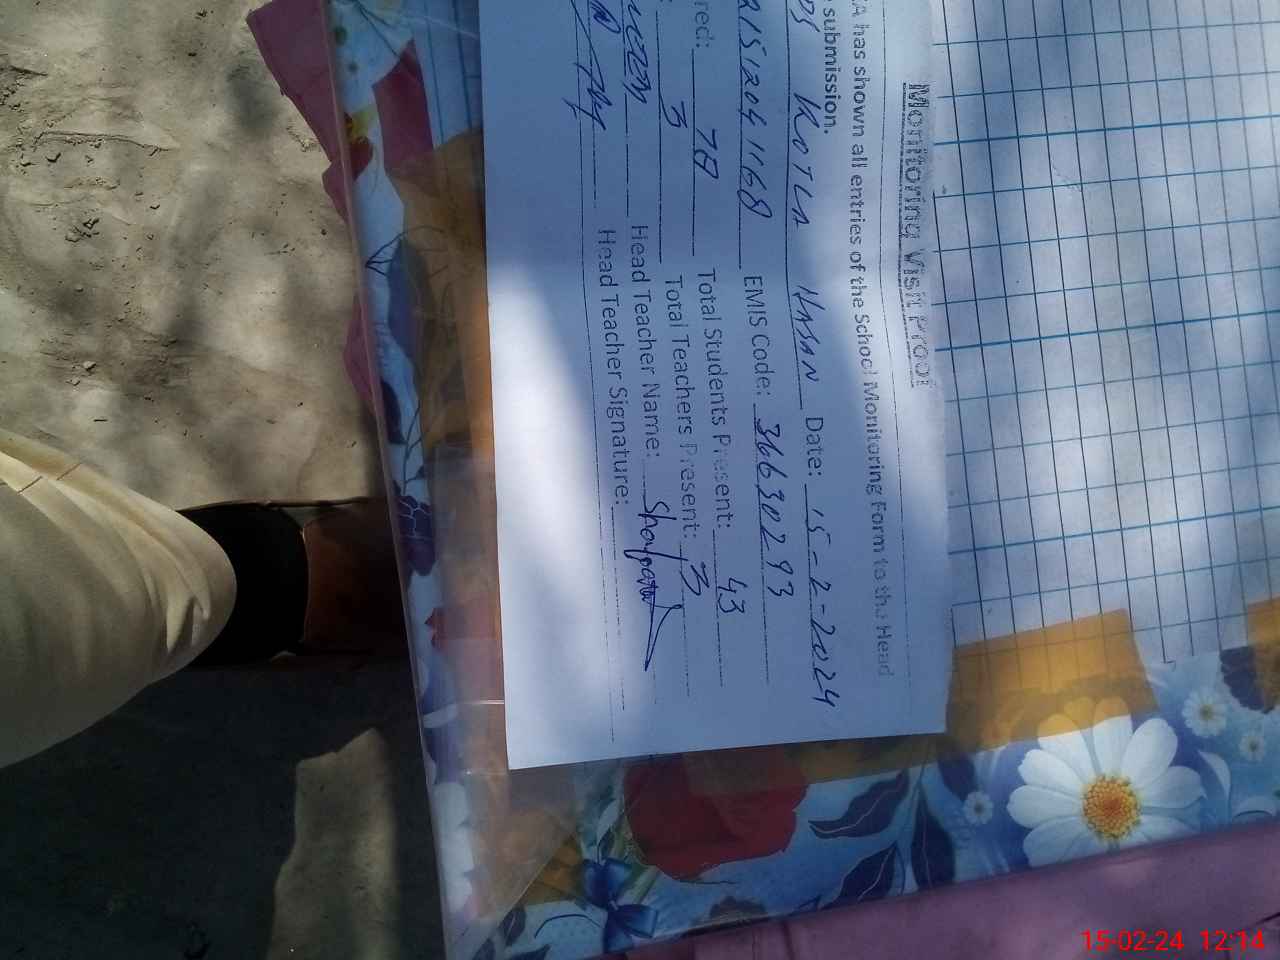 Monitoring Visit Proof
A has shown all entries of the School Monitoring Form to the Head
submission.
KOTLA HASAN Date: 15-2-2024
2151204 1168 EMIS Code: 36630293
red: 78 Total Students Present: 43
3 Total Teachers Present: 3
Head Teacher Name:
Head Teacher Signature:
15-02-24 12:14